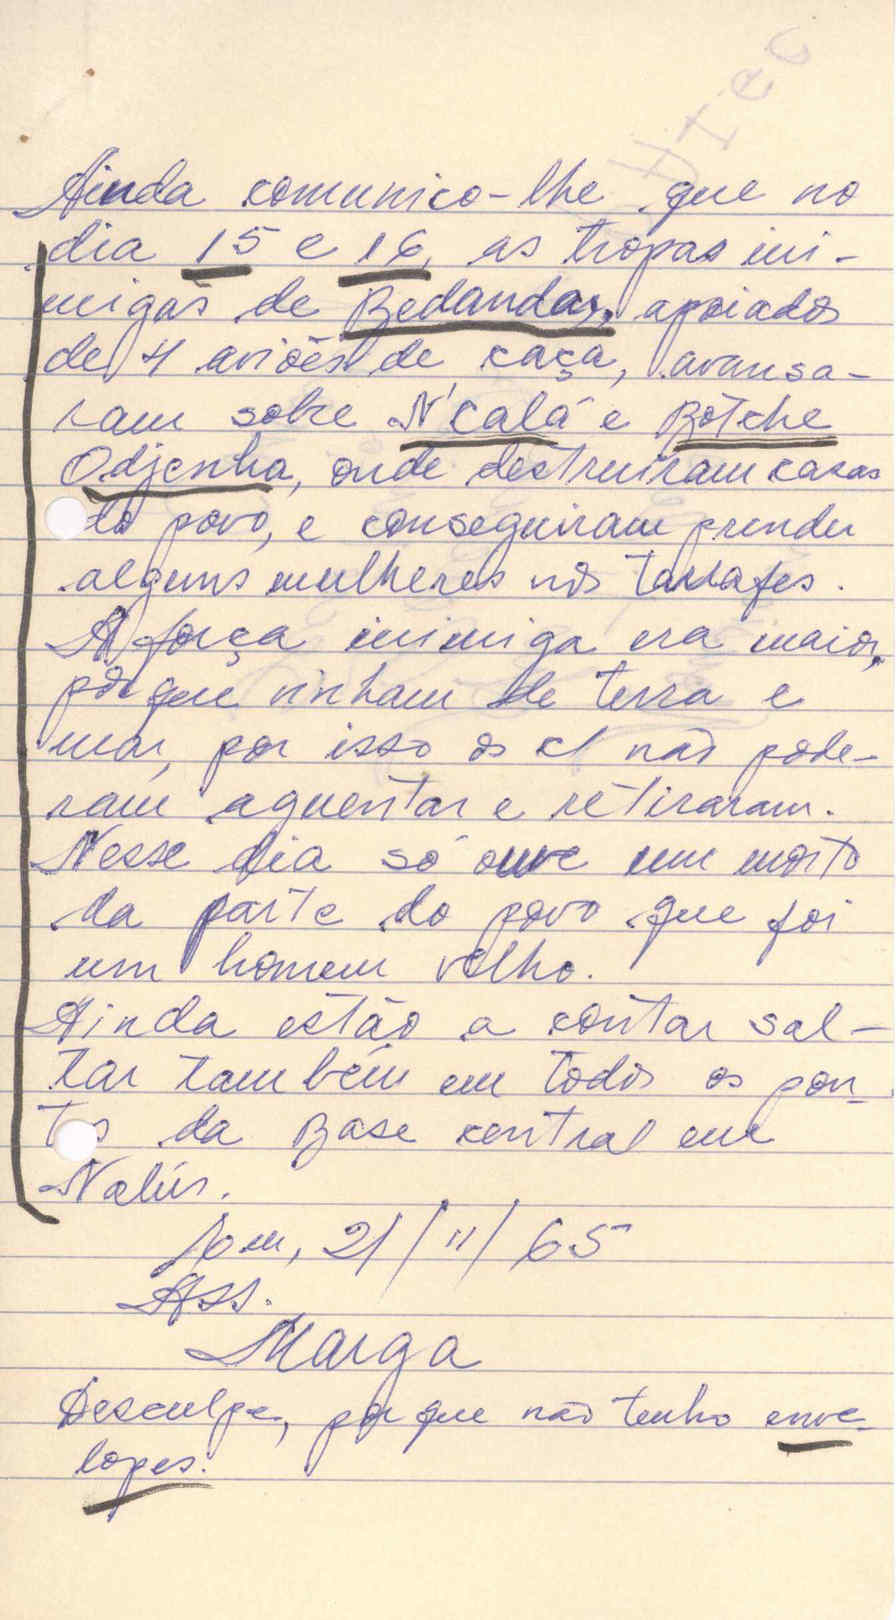 Ainda comunico-lhe que no
dia 15 e 16, as tropas ini-
migas de Bedanda, apoiados
de 4 aviões de caça, avansa-
ram sobre N'Calá e Botche
Odjenha, onde destruiram casas
do povo, e conseguiram prender
alguns mulheres nos tarrafes.
A força inimiga era maior,
porque vinham de terra e
mar, por isso os c/ não pode-
ram aguentar e retiraram.
Nesse dia só ouve um morto
da parte do povo que foi
um homem velho.
Ainda estão a contar sal-
tar também em todos os pon-
tos da Base central em
Nalús.
21/11/65
Ass.
Marga
Desculpe, porque não tenho enve-
lopes.